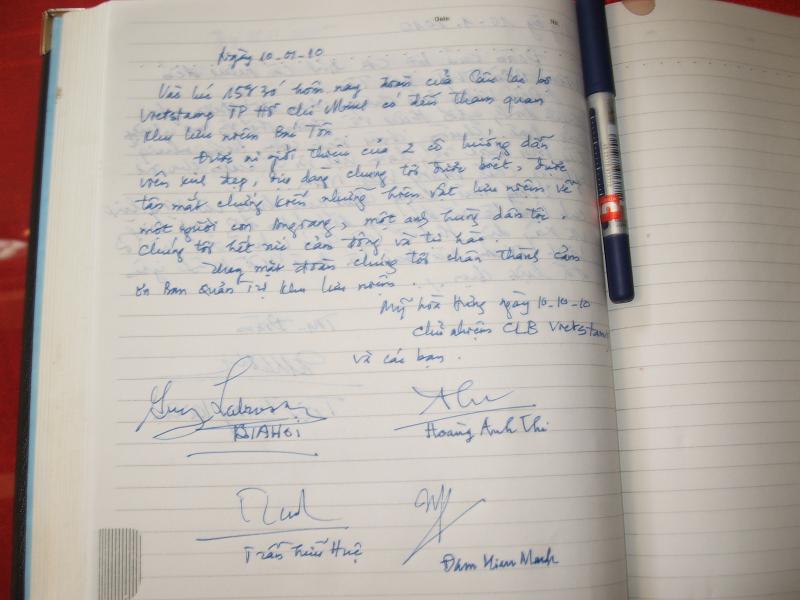 Date: No.
Ngày 10-01-10
Vào lúc 15g30 hôm nay đoàn của Câu lạc bộ
Vietstamp TP Hồ Chí Minh có đến tham quan
Khu lưu niệm Bác Tôn.
Được sự giới thiệu của 2 cô hướng dẫn
viên xinh đẹp, dịu dàng chúng tôi được biết, được
tận mắt chứng kiến những hiện vật lưu niệm về
một người con Angiang, một anh hùng dân tộc.
Chúng tôi hết sức cảm động và tự hào.
Thay mặt đoàn chúng tôi chân thành cảm
ơn Ban Quản Trị khu lưu niệm.
Mỹ hòa Hưng ngày 10-10-10
Chủ nhiệm CLB Vietstamp
và các bạn.
BIAHOI
Hoàng Anh Thi
Trần Hữu Huệ
Đàm Hien Manh